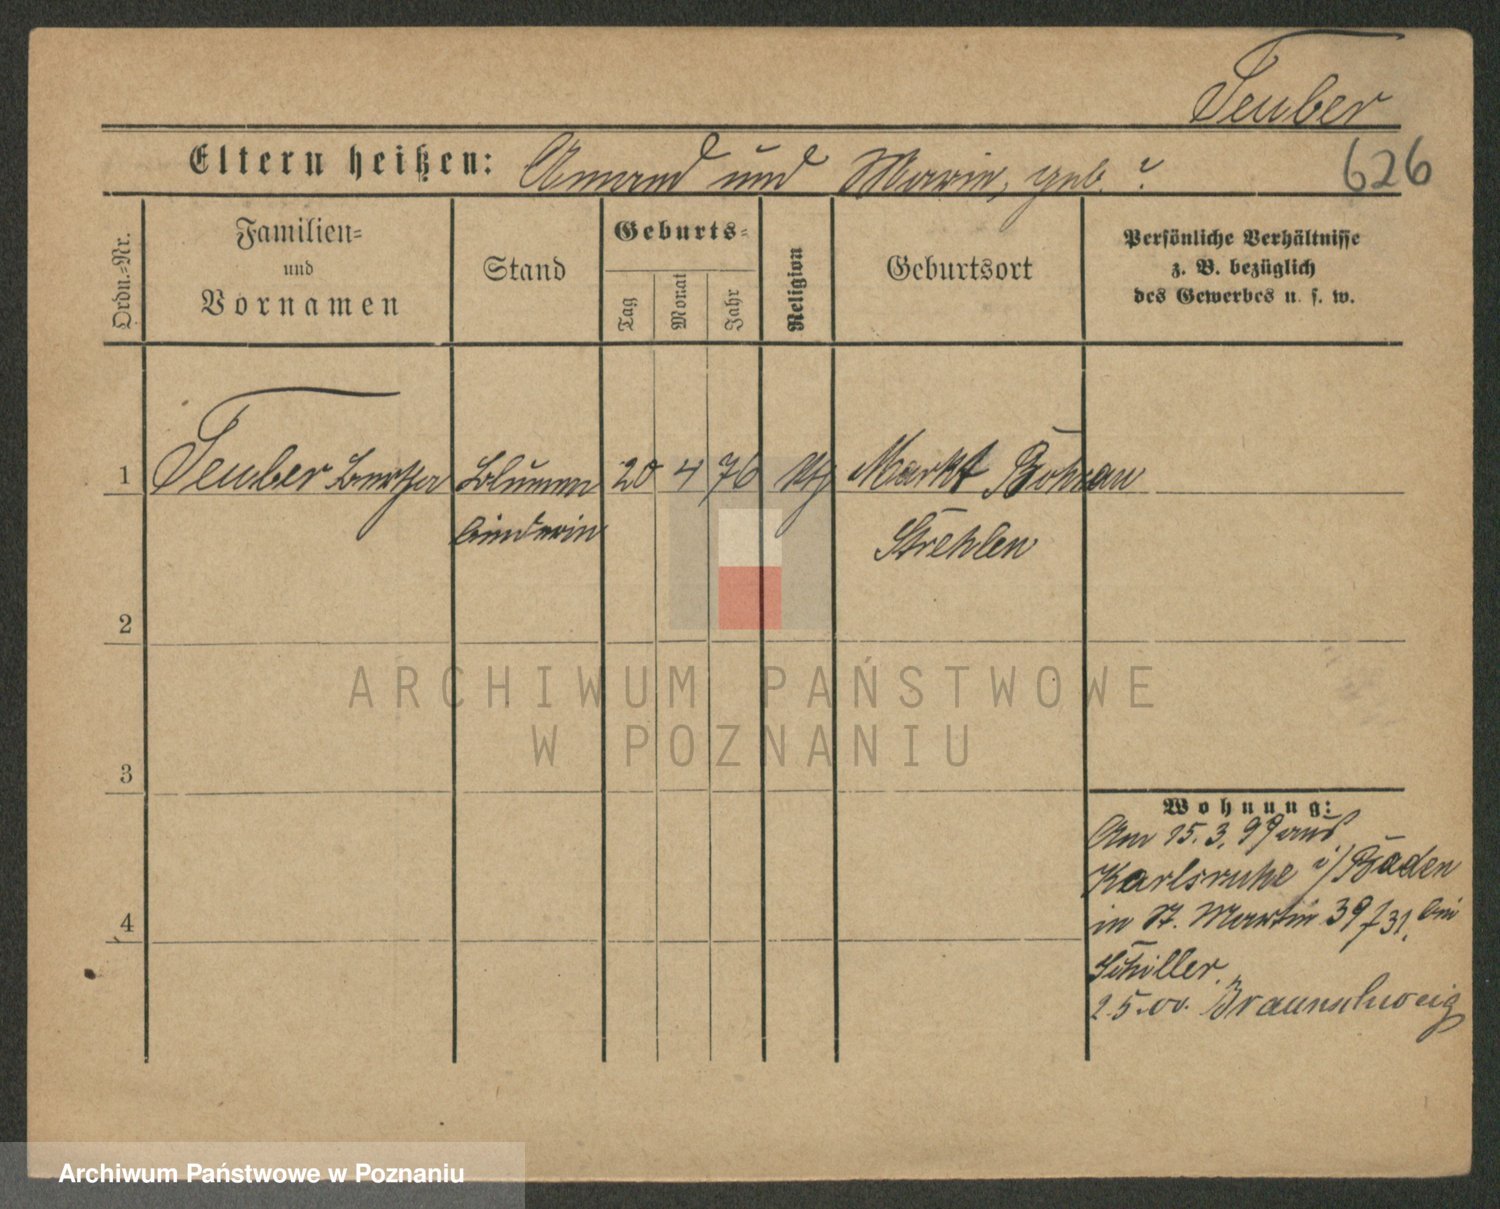 Teuber
Eltern heißen: Amand und Marie, geb. ?
626
Ordn.-Nr.
Familien-
und
Vornamen
Stand
Geburts-
Tag
Monat
Jahr
Religion
Geburtsort
Persönliche Verhältnisse
z. B. bezüglich
des Gewerbes u. s. w.
1 Teuber Bertha Blumen 20 4 76 Markt Bohrau
binderin Strehlen
2
3
4
Wohnung:
Am 15.3.99 aus
Karlsruhe i/Baden
in St. Martin 39 f 31. bei
Schiller.
2.5.00. Braunschweig
ARCHIWUM PAŃSTWOWE
W POZNANIU
Archiwum Państwowe w Poznaniu